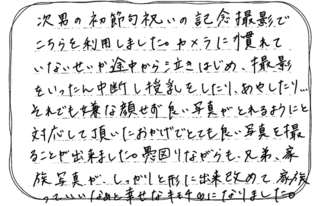 次男の初節句祝いの記念撮影で
こちらを利用しました。カメラに慣れて
いないせいか途中から泣きはじめ、撮影
をいったん中断し授乳をしたり、あやしたり…
それでも嫌な顔せず良い写真がとれるようにと
対応して頂いたおかげでとても良い写真を撮
ることが出来ました。愚図りながらも、兄弟、家
族写真が、しっかりと形に出来改めて、家族
っていいなぁと幸せなキモチめになりました。